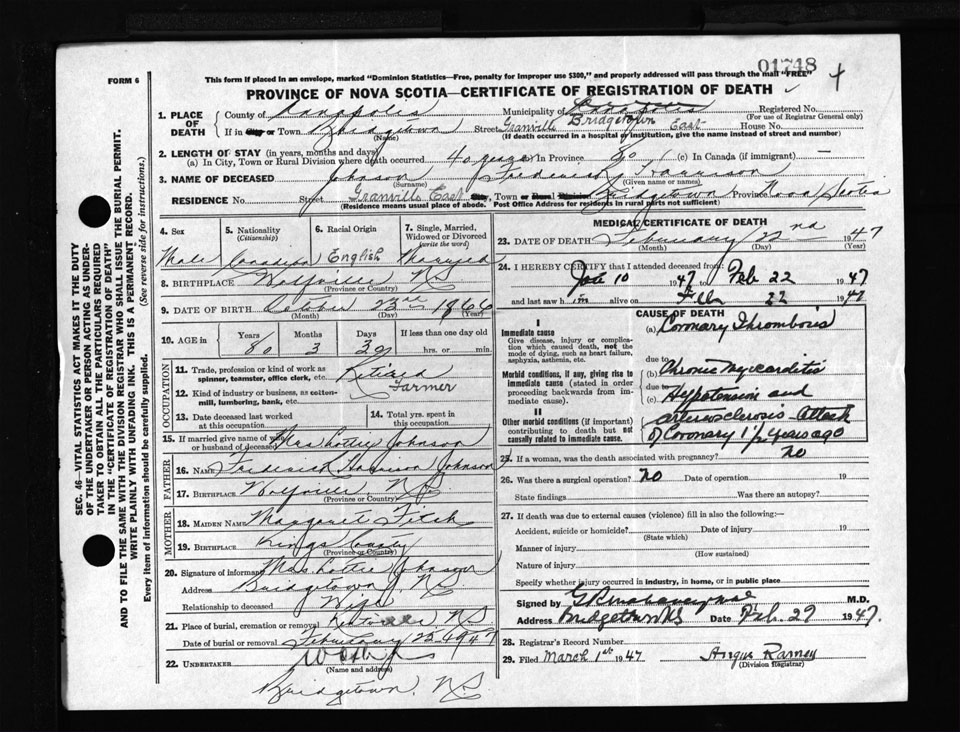 01748
FORM 6
This form if placed in an envelope, marked "Dominion Statistics—Free, penalty for improper use $300," and properly addressed will pass through the mail "FREE"
PROVINCE OF NOVA SCOTIA—CERTIFICATE OF REGISTRATION OF DEATH
1. PLACE OF DEATH
County of Annapolis Municipality of Registered No.
(For use of Registrar General only)
If in City or Town Bridgetown Street Granville Bridgetown East House No.
(Name) (If death occurred in a hospital or institution, give the name instead of street and number)
2. LENGTH OF STAY (in years, months and days)
(a) In City, Town or Rural Division where death occurred 40 years In Province 80 (c) In Canada (if immigrant) —
3. NAME OF DECEASED Johnson Frederick Harrison
(Surname) (Given name or names)
RESIDENCE No. Street Granville East City, Town or Rural Division Bridgetown Province Nova Scotia
(Residence means usual place of abode. Post Office Address for residents in rural parts not sufficient)
4. Sex
Male
5. Nationality
(Citizenship)
Canadian
6. Racial Origin
English
7. Single, Married, Widowed or Divorced
(write the word)
Married
8. BIRTHPLACE Wolfville NS
(Province or Country)
9. DATE OF BIRTH October 23rd 1866
(Month) (Day) (Year)
10. AGE in
Years Months Days If less than one day
80 3 30 hrs. or min.
OCCUPATION
11. Trade, profession or kind of work as spinner, teamster, office clerk, etc. Retired
12. Kind of industry or business, as cotton-mill, lumbering, bank, etc. Farmer
13. Date deceased last worked at this occupation
14. Total yrs. spent in this occupation
15. If married give name of wife or husband of deceased Mrs Lottie Johnson
FATHER
16. NAME Frederick Harrison Johnson
17. BIRTHPLACE Wolfville N.S.
(Province or Country)
MOTHER
18. MAIDEN NAME Margaret Fitch
19. BIRTHPLACE Kings County
(Province or Country)
20. Signature of informant Mrs Lottie Johnson
Address Bridgetown NS
Relationship to deceased Wife
21. Place of burial, cremation or removal Kentville, NS
Date of burial or removal February 25 1947
22. UNDERTAKER
(Name and address)
Bridgetown, N.S
MEDICAL CERTIFICATE OF DEATH
23. DATE OF DEATH February 22nd 1947
(Month) (Day) (Year)
24. I HEREBY CERTIFY that I attended deceased from:
Jan 10 1947 to Feb 22 1947
and last saw him alive on Feb 22 1947
CAUSE OF DEATH
I
Immediate cause
Give disease, injury or complication which caused death, not the mode of dying, such as heart failure, asphyxia, asthenia, etc.
(a) Coronary Thrombosis
due to
Morbid conditions, if any, giving rise to immediate cause (stated in order proceeding backwards from immediate cause).
(b) Chronic Myocarditis
due to
(c) Hypotension and
II
Other morbid conditions (if important) contributing to death but not causally related to immediate cause.
arteriosclerosis - Attack
of Coronary 1 1/2 years ago
25. If a woman, was the death associated with pregnancy? no
26. Was there a surgical operation? no Date of operation 19
State findings Was there an autopsy?
27. If death was due to external causes (violence) fill in also the following:—
Accident, suicide or homicide? Date of injury 19
(State which)
Manner of injury
(How sustained)
Nature of injury
Specify whether injury occurred in industry, in home, or in public place
Signed by M.D.
Address Bridgetown NS Date Feb. 27 1947.
28. Registrar's Record Number
29. Filed March 1st 1947 Angus Ramey
(Division Registrar)
SEC. 46—VITAL STATISTICS ACT MAKES IT THE DUTY
OF THE UNDERTAKER OR PERSON ACTING AS UNDER-
TAKER TO OBTAIN ALL THE PARTICULARS REQUIRED
IN THE "CERTIFICATE OF REGISTRATION OF DEATH"
AND TO FILE THE SAME WITH THE DIVISION REGISTRAR WHO SHALL ISSUE THE BURIAL PERMIT.
WRITE PLAINLY WITH UNFADING INK. THIS IS A PERMANENT RECORD.
Every item of information should be carefully supplied. (See reverse side for instructions.)